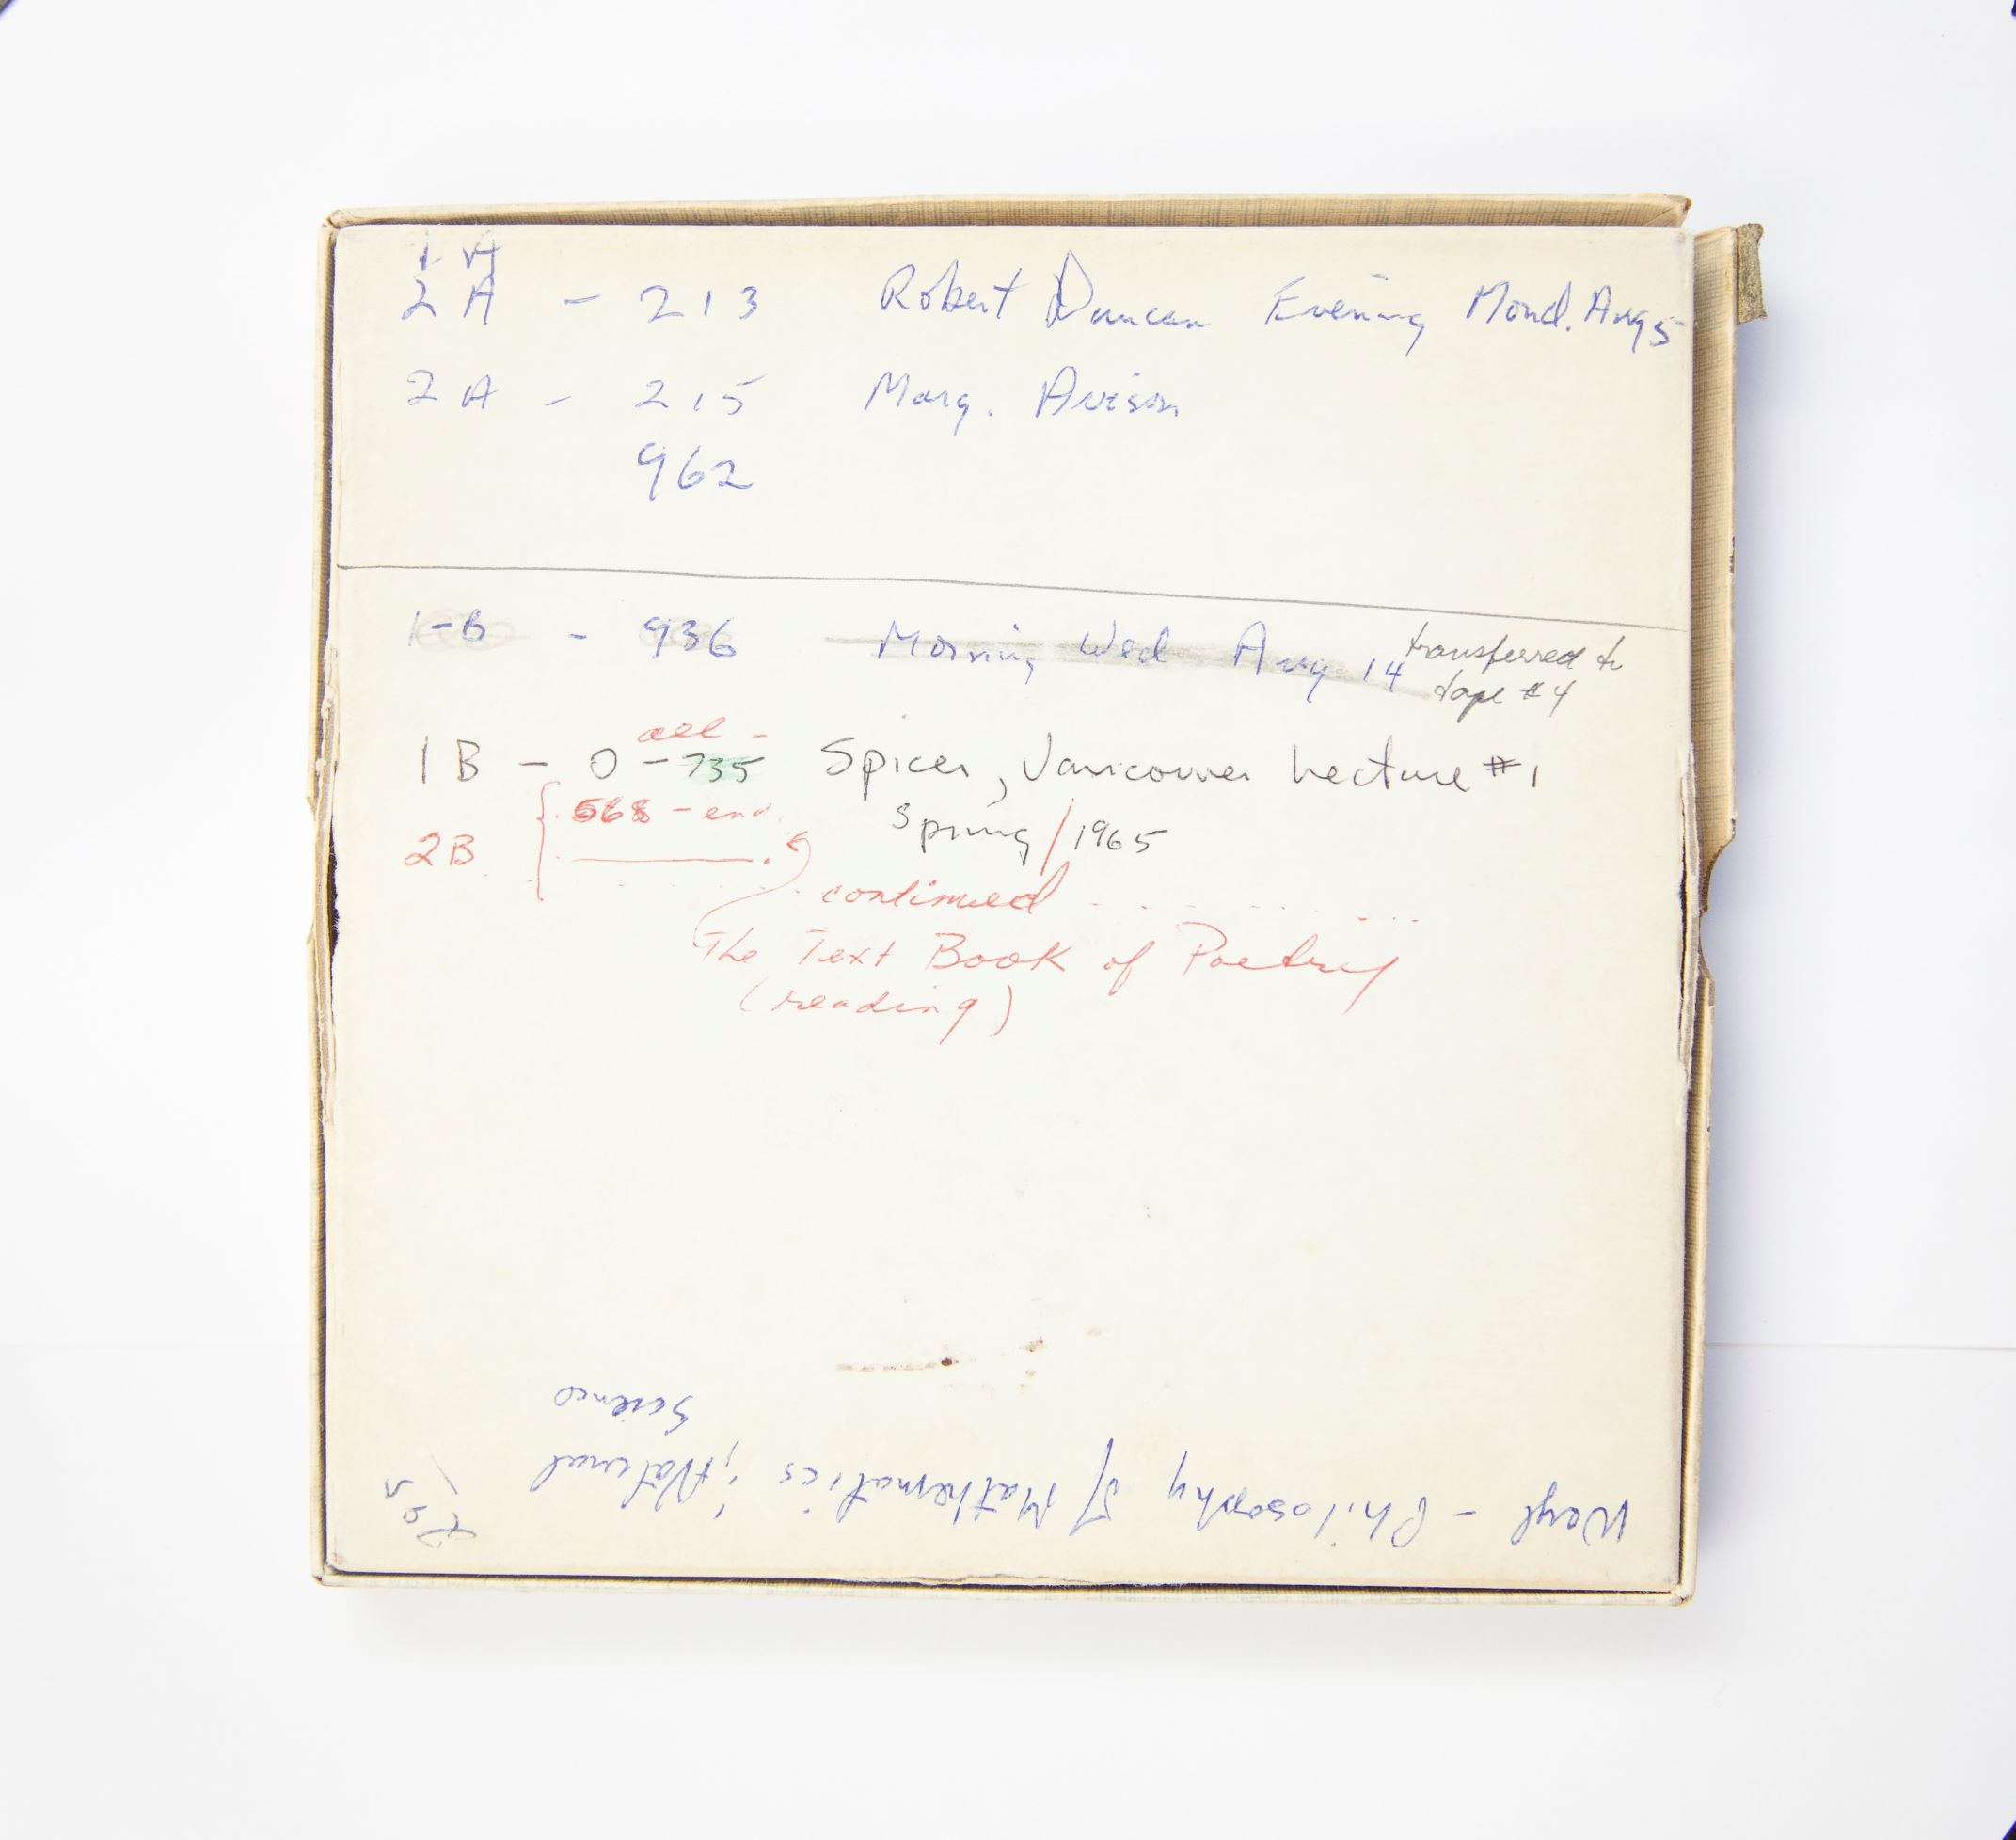 1 A
2 A - 213 Robert Duncan Evening Mond. Aug 5
2 A - 215 Marg. Avison
962
1-B - 936 Morning Wed Aug 14 transferred to
tape #4
all -
1 B - 0 - 735 Spicer, Vancouver Lecture #1
568 - end Spring / 1965
2B
continued
The Text Book of Poetry
(reading)
Weyl - Philosophy of Mathematics & Natural
Science